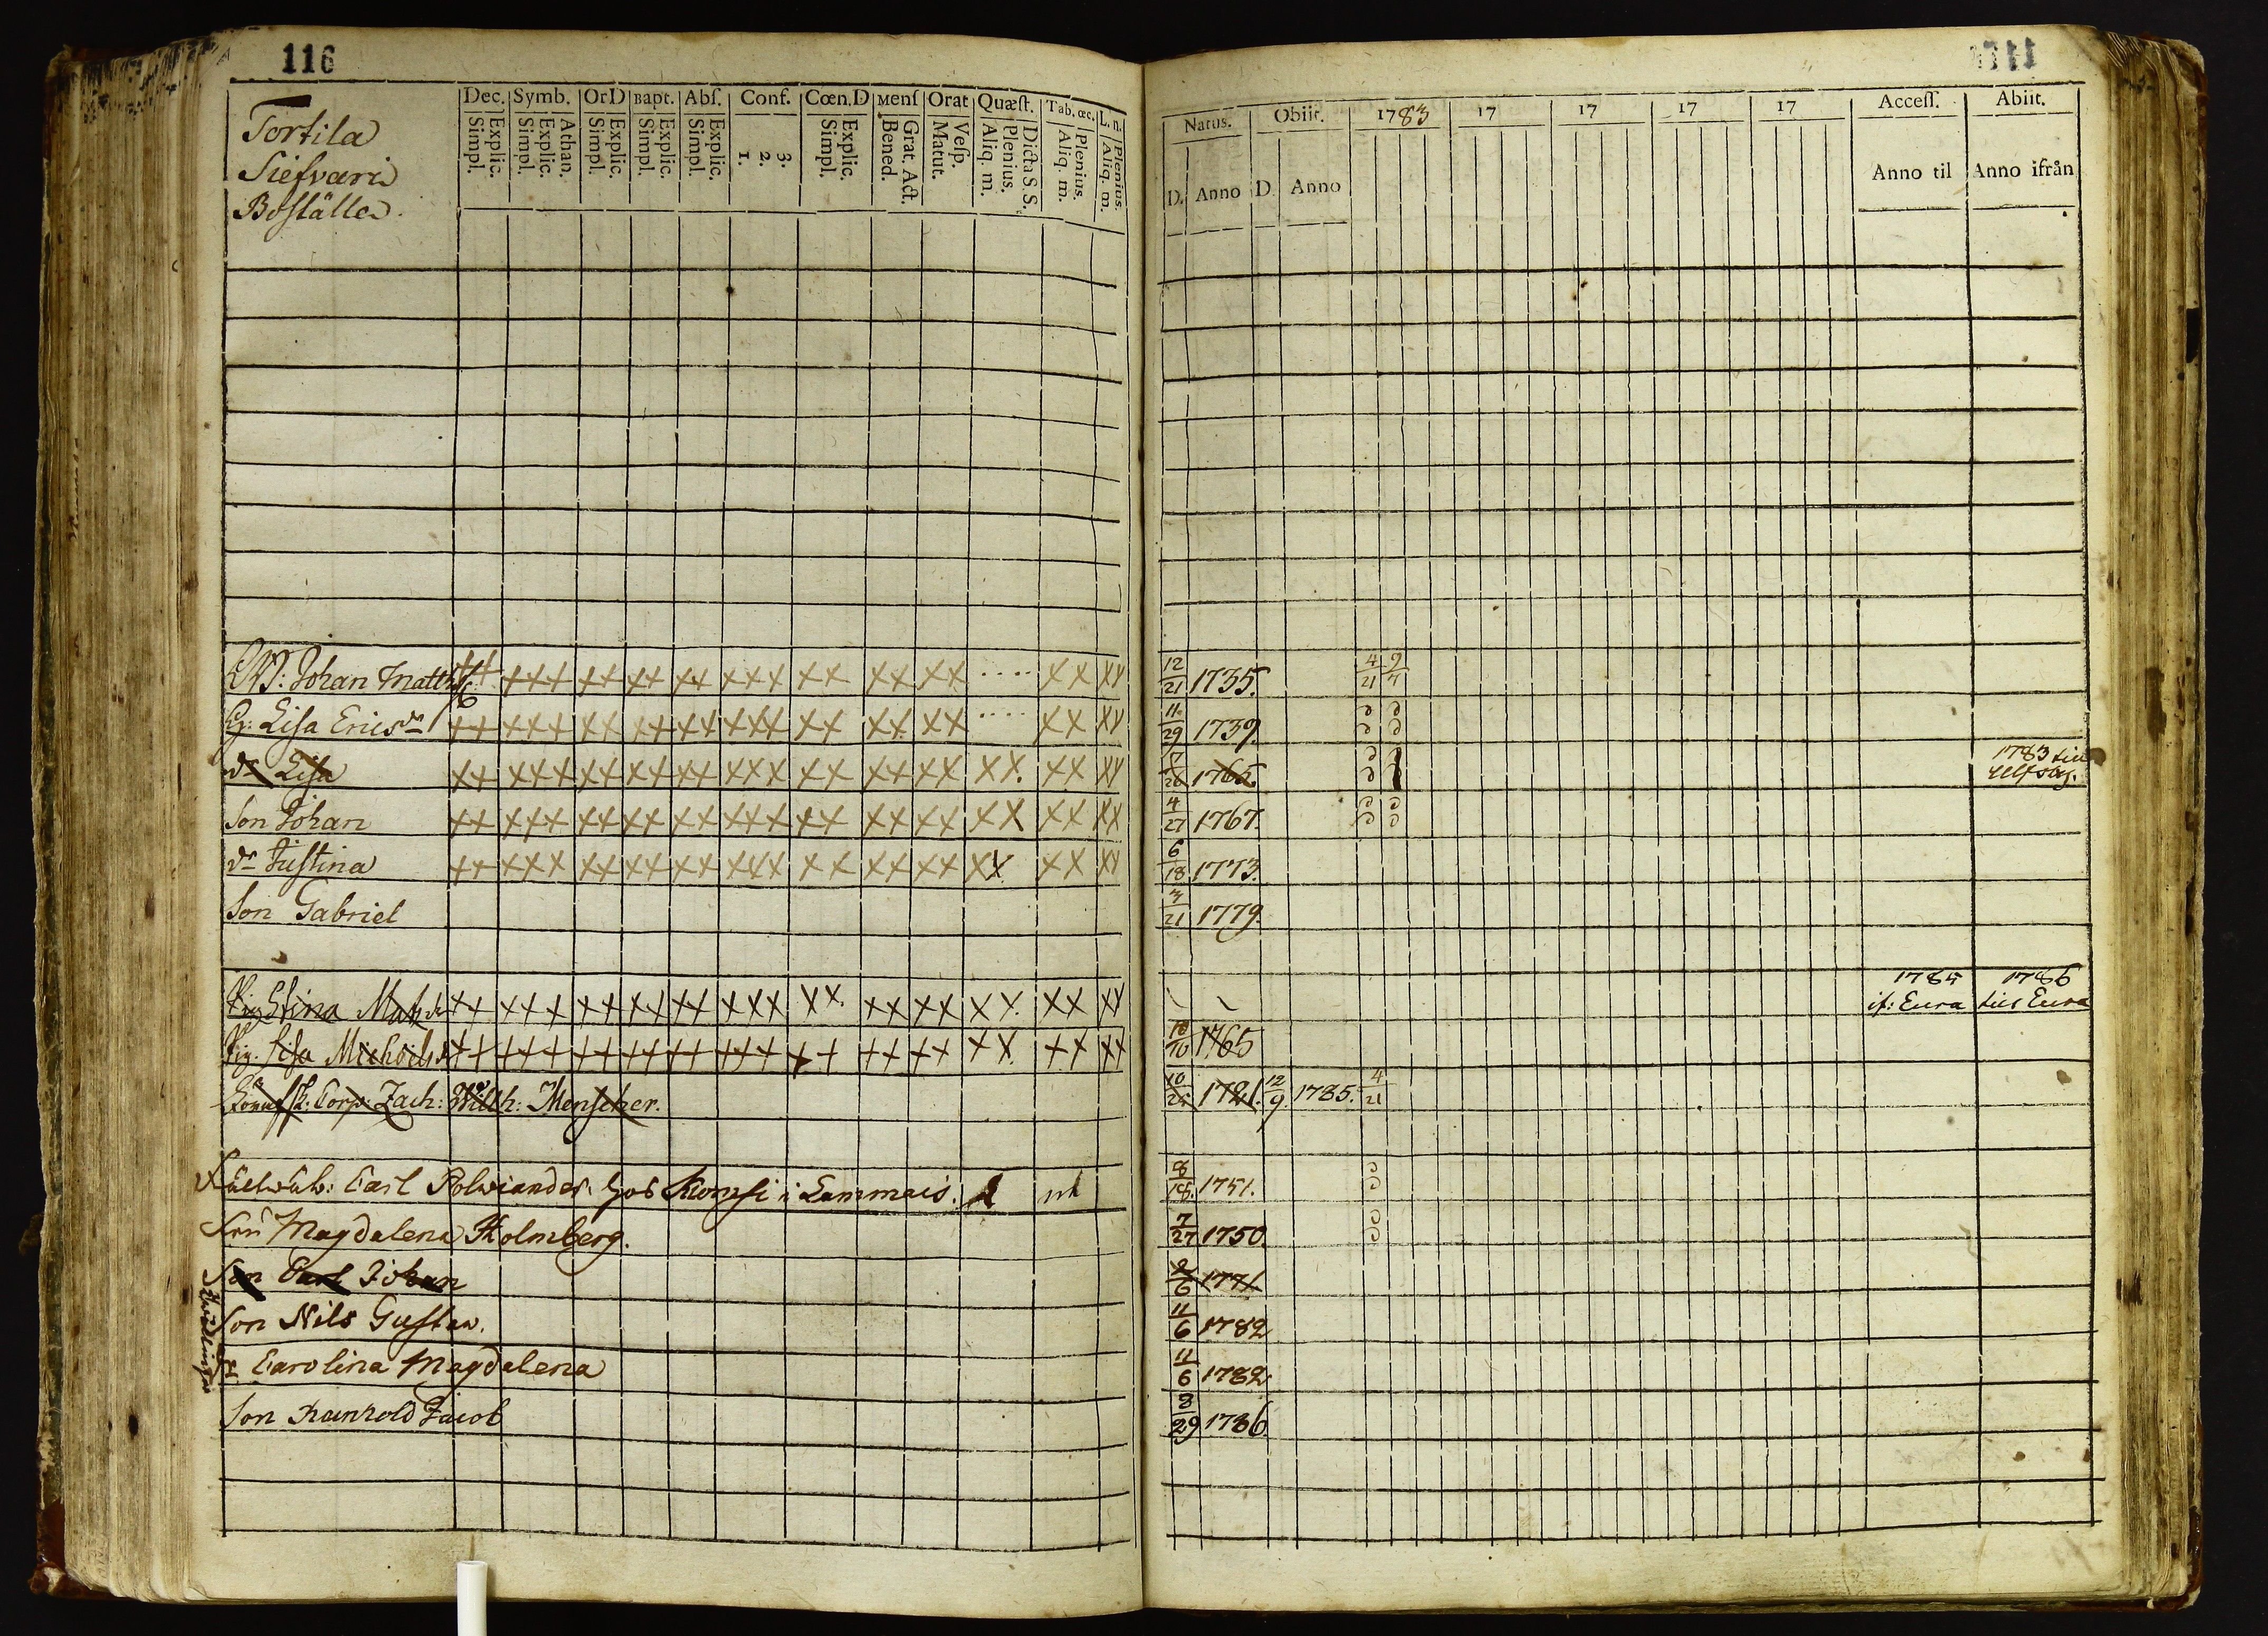 116
Tortila
Siefvari
Boställe.
Dec. Symb. OrD Bapt. Abſ. Conf. Cœn.D Menſ Orat Quæſt. Tab. œc. L. n.
Simpl. Explic. Simpl. Explic. Athan. Simpl. Explic. Simpl. Explic. Simpl. Explic. 1. 2. 3. Simpl. Explic. Bened. Grat. Act. Matut. Veſp. Aliq. m. Plenius. Dicta S. S. Aliq. m. Plenius. Aliq. m. Plenius.
Natus. Obiit. 1783 17 17 17 17 Acceſſ. Abiit.
D. Anno D. Anno Anno til Anno ifrån
Johan Matths 12/21 1735. 4/21
Lisa Ericsdr 11/29 1739.
dr Lisa 1765. 1783 till
Son Johan 4/27 1767.
dr Justina 6/18 1773.
Son Gabriel 3/21 1779.
Pig Stina Mats dr 1786
if: Eura till Eura
Pig. Lisa Michels dr 10/10 1765
Corp: Zach: Wilh: Menscher. 10/25 1721. 12/9 1785. 4/21
Carl Polviander. Lammais. 8/18. 1751.
Fru Magdalena Holmberg. 7/27 1750.
Son Carl Johan 1771
Son Nils Gustav. 11/6 1782
dr Carolina Magdalena 11/6 1782
Son Reinhold Jacob 8/29 1786